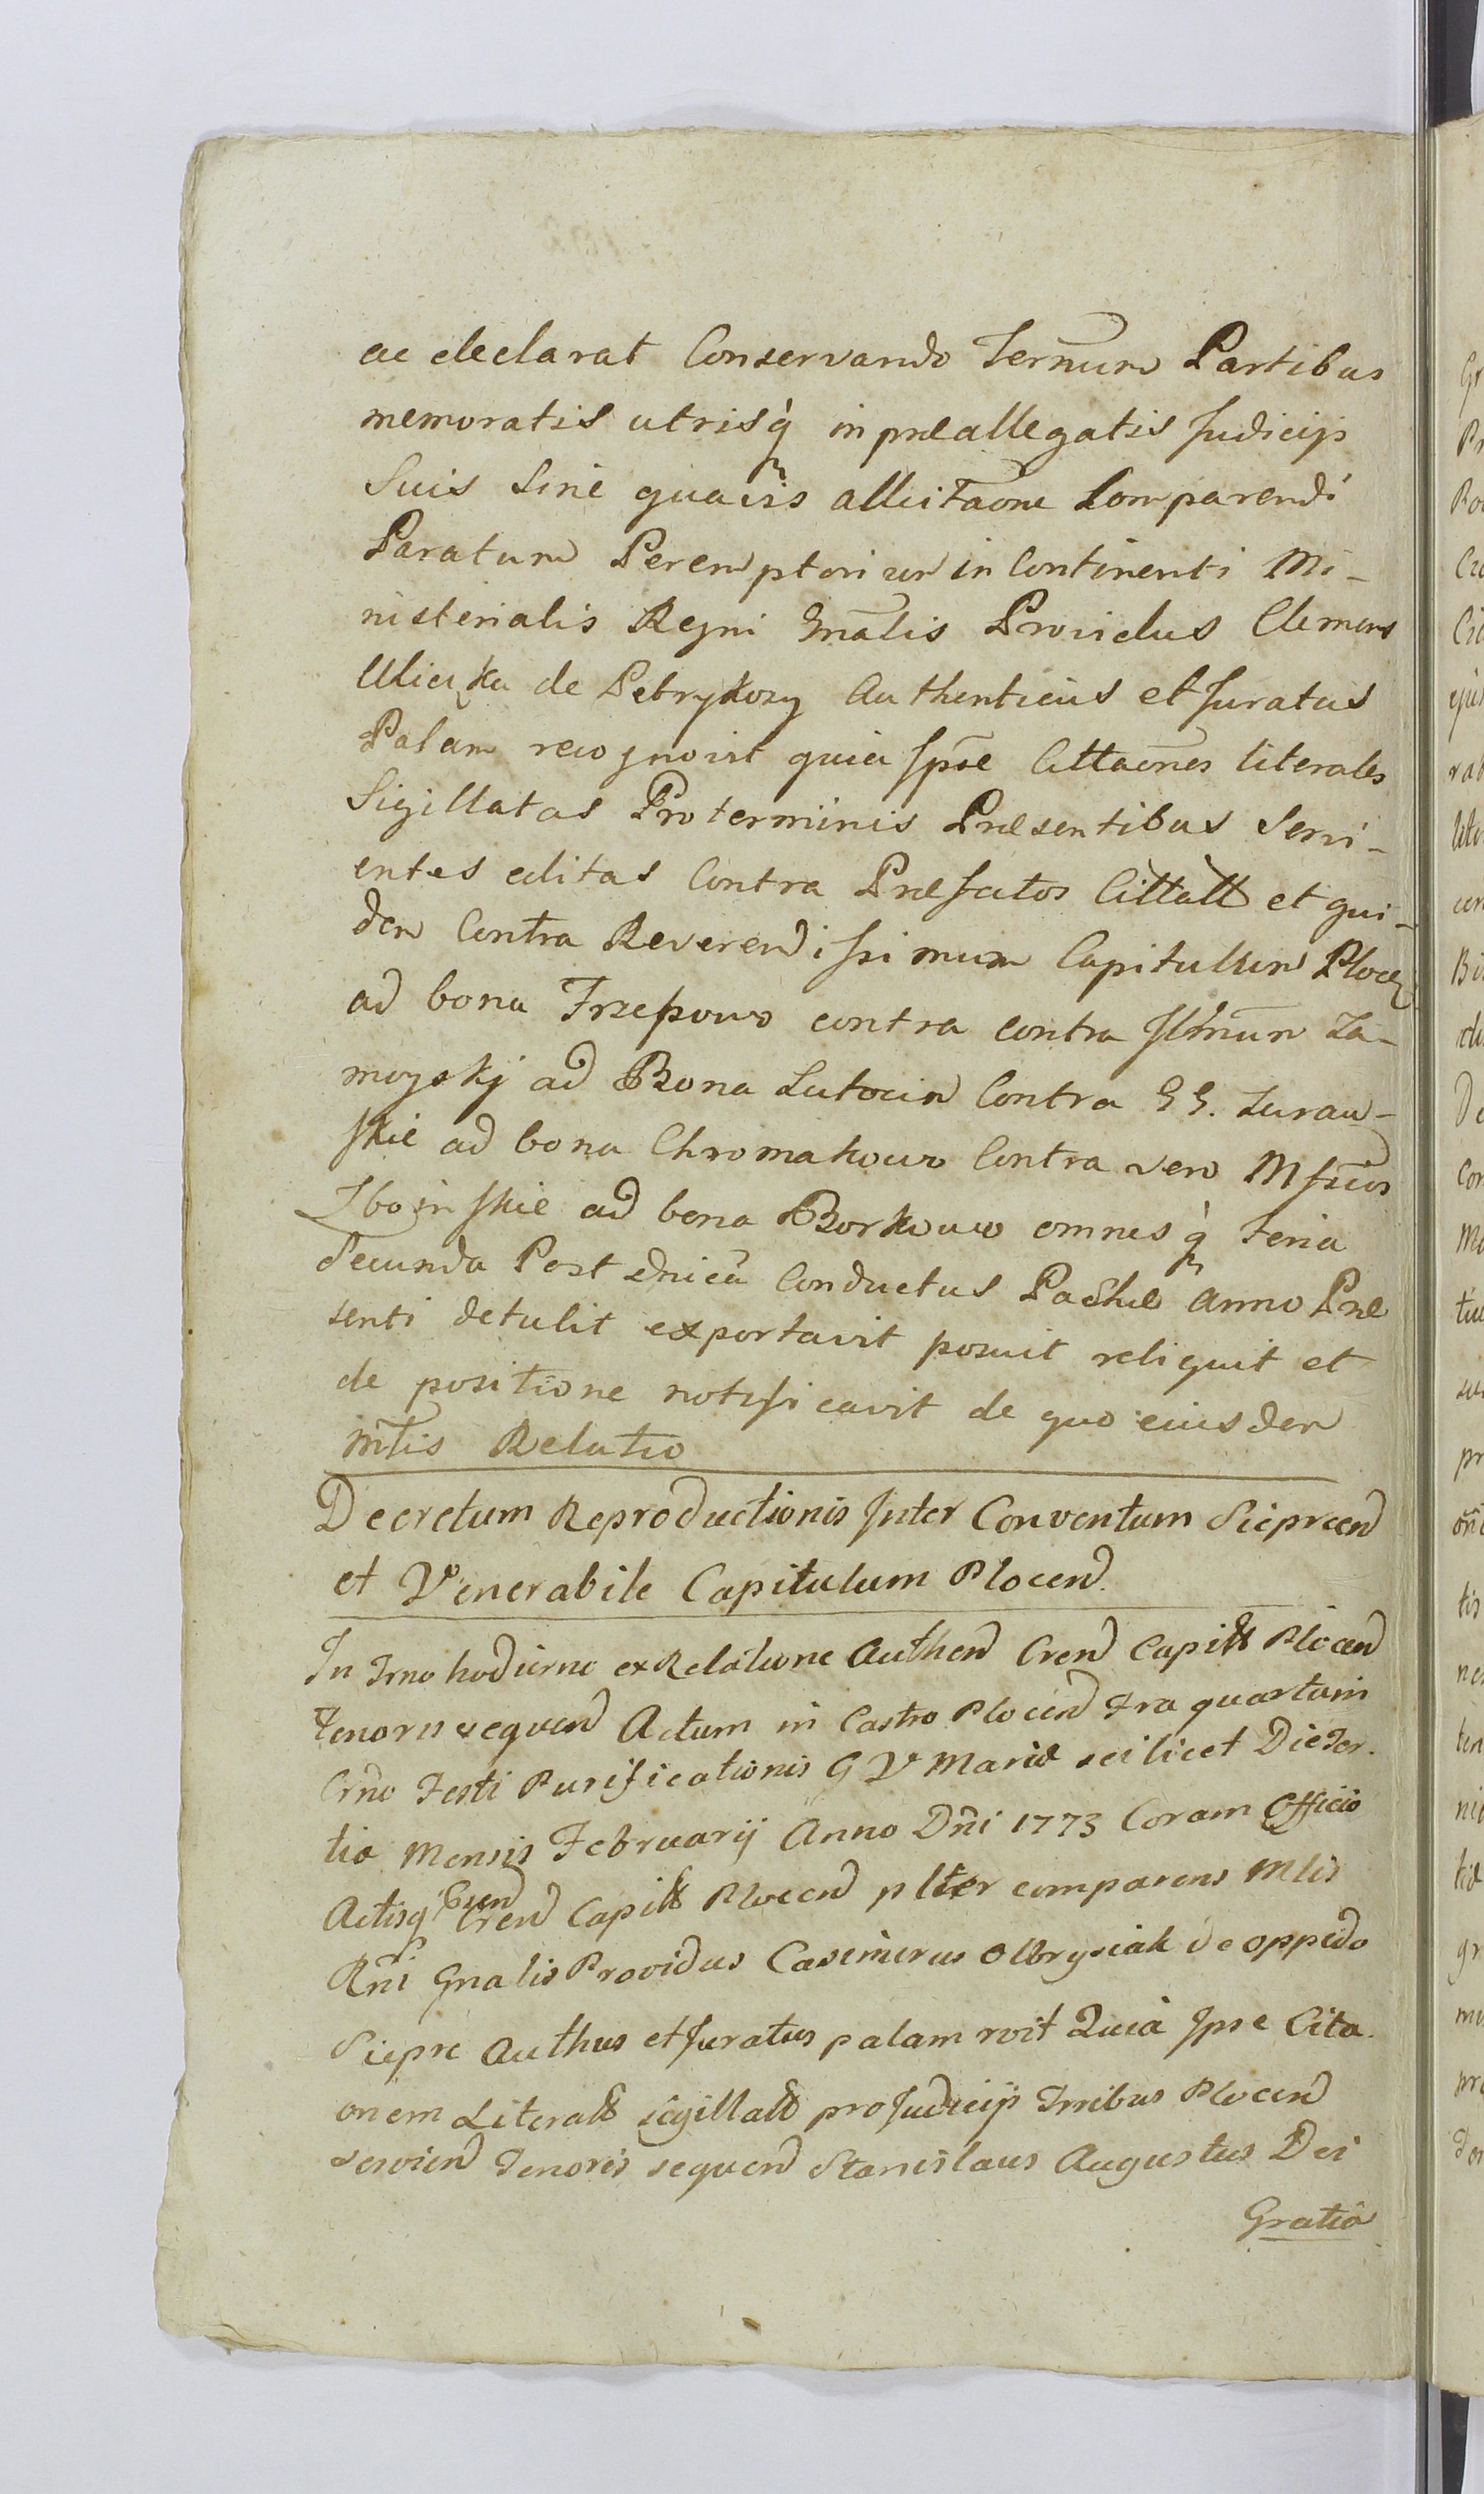 ac declarat Conservando Termum Partibus
memoratis utrisq́ in præallegatis Judicijs
Suis Sine quavis allcitaõne Comparendi
Paratum Peremptorium in Continenti Mi-
nisterialis Regni Gnãlis Providus Clemens
Uliczka de Petrykozy Authenticus et Juratus
Palam recognovit quia Jpse Cittaõnes literales
Sigillatas Pro terminis Præsentibus Servi-
entes editas Contra Præfatos Cittatt et qui-
dem Contra Reverendissimum Capitullum Plocz
ad bona Trzepowo contra contra Jllmum Za-
moyskj ad Bona Lutocin Contra G G. Zuraw-
skie ad bona Chromakowo Contra vero Mfcos
Zboinskie ad bona Borkowo omnesq́ Feria
Secunda Post Dnicã Conductus Paschæ Anno Præ
senti detulit exportavit posuit reliquit et
de positione notificavit de quo eiusdem
mtis Relatio
Decretum Reproductionis Jnter Conventum Sieprcen
et Venerabile Capitulum Plocen.
In Trno hodierno ex Relatione Authen Cren Capitt Plocen
Tenoris sequen Actum in Castro Plocen Fra quarta in
Crno Festi Purificationis G V Mariæ scilicet Die Ter-
tia Mensis Februarij Anno Dni 1773 Coram Officio
Actisq́ Cren Capitt Plocen plter comparens Mlis
Rni Gnalis Providus Casimirus Olbrysiak de oppido
Sieprc Authus et Juratus palam rvit Quia Jpse Cita-
onem Literalt sigillatt pro Judicijs Trribus Plocen
servien Tenoris sequen Stanislaus Augustus Dei
Gratia